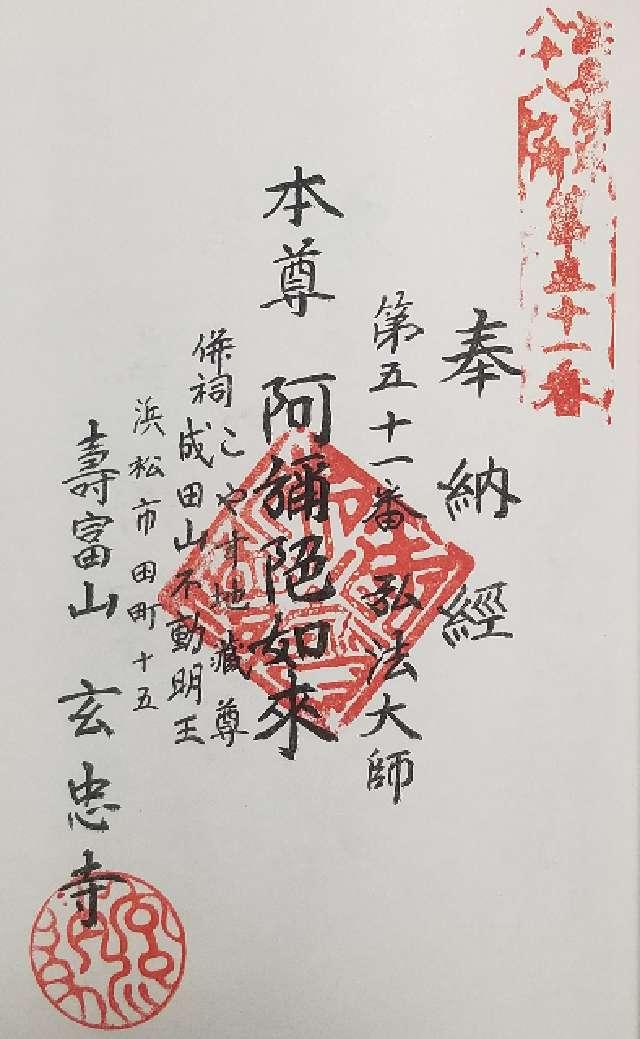 八十八ヶ所
第五十一番
奉納經
第五十一番 弘法大師
本尊 阿彌陀如來
併祠 こやす地藏尊
成田山不動明王
浜松市田町十五
壽富山 玄忠寺